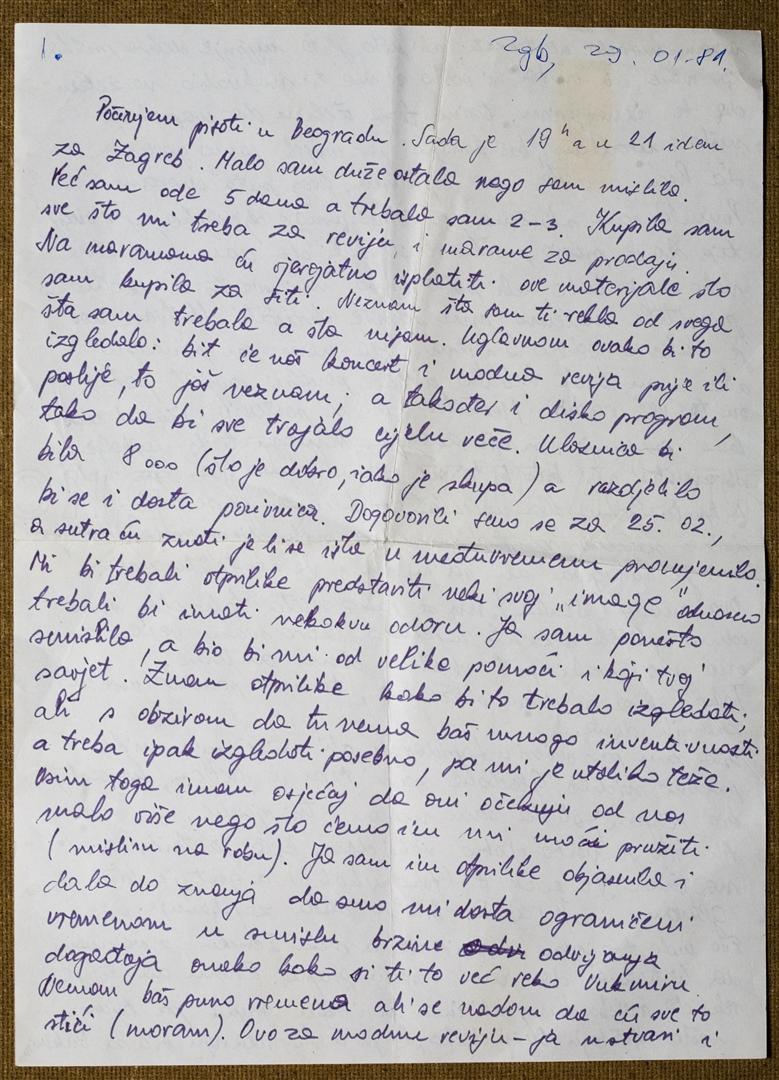 1.
Zgb, 29. 01-81.
Počinjem pisati u Beogradu. Sada je 19h a u 21 idem
za Zagreb. Malo sam duže ostala nego sam mislila.
Već sam ode 5 dana a trebala sam 2-3. Kupila sam
sve što mi treba za reviju, i marame za prodaju.
Na maramama ću vjerojatno isplatiti ove materijale što
sam kupila za šiti. Neznam šta sam ti rekla od svega
šta sam trebala a šta nijam. Uglavnom ovako bi to
izgledalo: bit će naš koncert i modna revija prije ili
poslije, to još neznam; a također i disko program,
tako da bi sve trajalo cijelu veče. Ulaznica bi
bila 8000 (što je dobro, iako je skupa) a razdjelilo
bi se i dosta pozivnica. Dogovorili smo se za 25. 02.,
a sutra ću znati je li se išta u međuvremenu promijenilo.
Mi bi trebali otprilike predstaviti neki svoj "image" odnosno
trebali bi imati nekakvu odoru. Ja sam ponešto
smislila, a bio bi mi od velike pomoći i koji tvoj
savjet. Znam otprilike kako bi to trebalo izgledati;
ali s obzirom da tu nema baš mnogo inventivnosti
a treba ipak izgledati posebno, pa mi je utoliko teže.
Osim toga imam osjećaj da oni očekuju od nas
malo više nego što ćemo im mi moći pružiti
(mislim na robu). Ja sam im otprilike objasnila i
dala do znanja da smo mi dosta ograničeni
vremenom u smislu brzine odvijanja
događaja onako kako si ti to već reko Vukmiru.
Nemam baš puno vremena ali se nadam da ću sve to
stići (moram). Ovo za modnu reviju - ja ustvari i